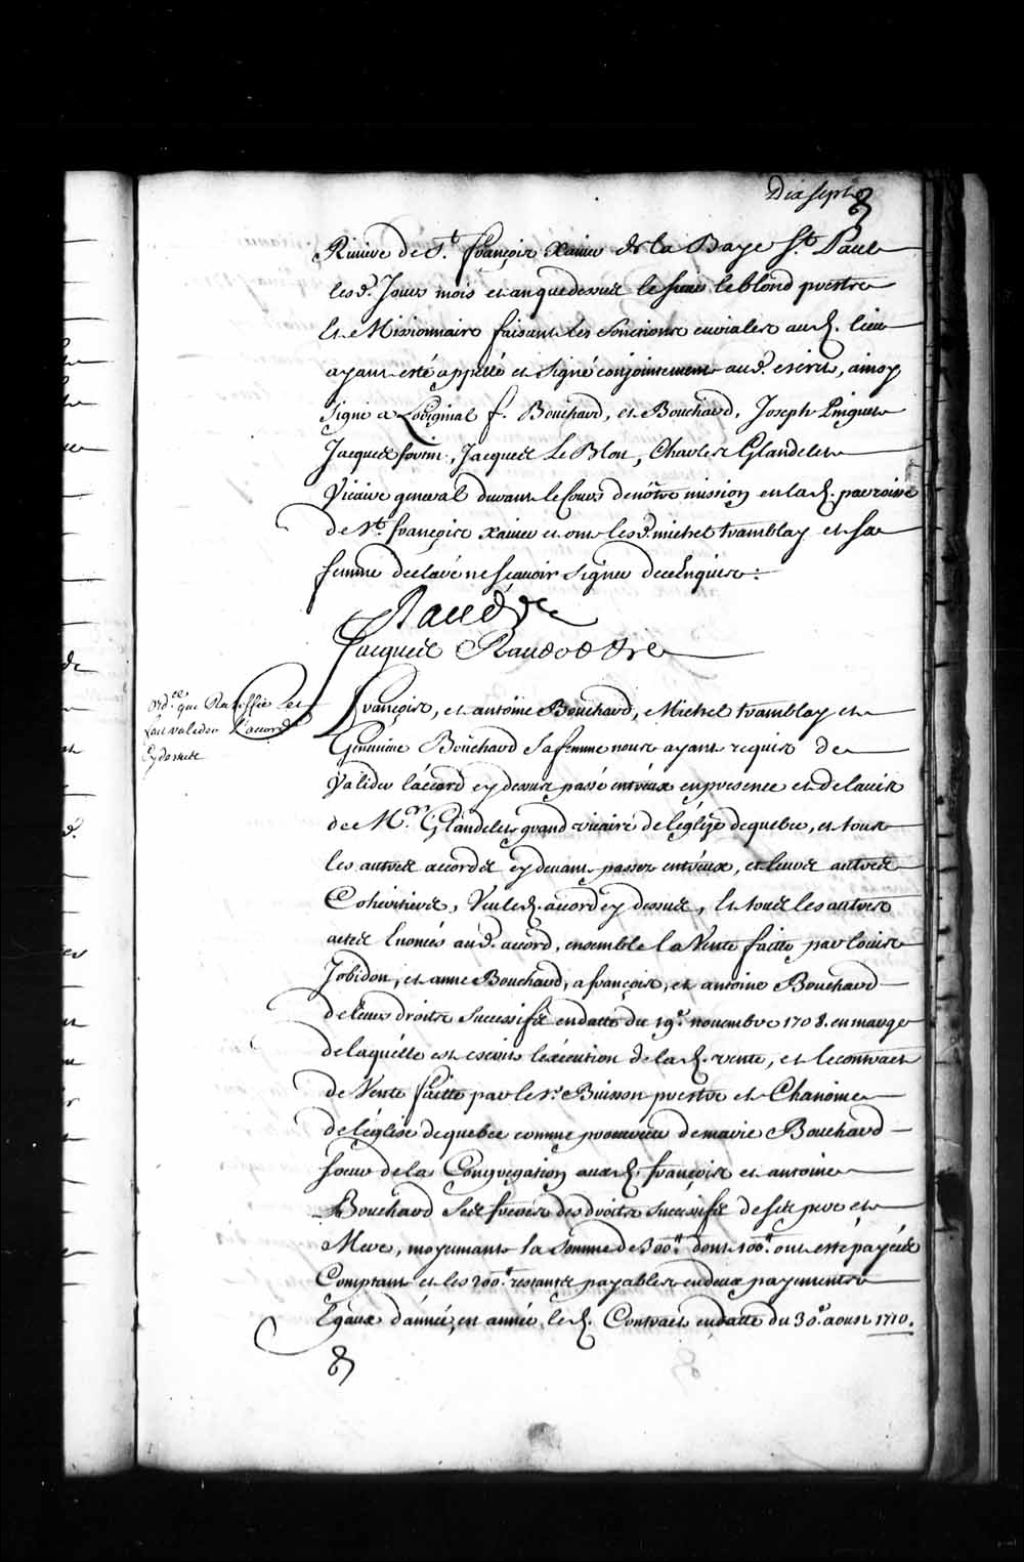 Dixsept
Riviere de St. françois xavier de la Baye St. Paul
lesd. Jours mois et an que dessus le sieur leblond prestre
Et Missionnaire faisant les fonctions curiales aud. lieu
ayant esté appellé et signé conjointement aud. escrit, ainsy
signé a Loriginal f. Bouchard, et Bouchard, Joseph Pinguet
Jacques fortin, Jacques Le Blon, Charles Glandelet
Vicaire general durant le cours de nôtre mission en lad. parroisse
de St. françois xavier et ont lesd. michel tramblay et sa
femme declaré ne scavoir signer de ce Enquis :
Raudot
Jacques Raudot
ord.ce que Ratiffie et
fait valider l'accord
Cy dessus
François, et antoine Bouchard, Michel tramblay et
Genevieve Bouchard sa femme nous ayant requis de
Valider l'accord cy dessus passé entr'eux en presence et de l'avis
de Mr. Glandelet grand vicaire de l'église de quebec, et tous
les autres accords cy devant passez entr'eux, et leurs autres
Coheritiers, Veu led. acord cy dessus, Et tous les autres
actes Enoncés aud. accord, ensemble la Vente faitte par louis
Jobidon, et anne Bouchard, a françois, et antoine Bouchard
de leurs droits Successifs en datte du 19e. novembre 1708. en marge
de laquelle est escrit l'exécution de lad. vente, et le contract
de Vente faitte par le Sr. Buisson prestre et Chanoine
de l'église de quebec comme procureur de marie Bouchard
soeur de la Congregation auxd. françois et antoine
Bouchard ses freres des droits successifs de ses pere et
Mere, moyennant la Somme de 300ll. dont 100ll. ont esté payées
Comptant et les 200ll. restants payables en deux payements
Egaux d'année, en année, led. Contract en datte du 30e. aoust 1710.